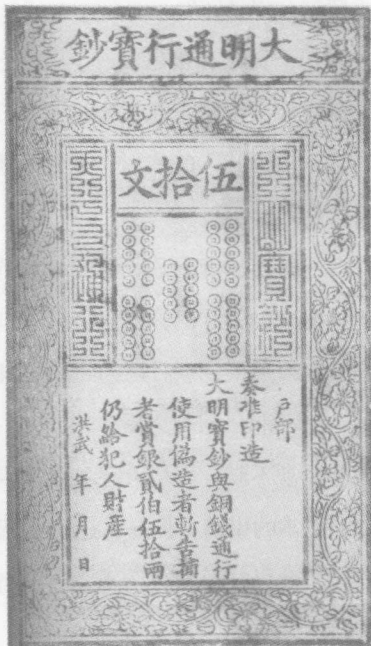 大明通行寶鈔
伍拾文
户部
奏准印造
大明寶鈔與銅錢通行
使用偽造者斬告捕
者賞銀貳伯伍拾兩
仍給犯人財產
洪武 年 月 日